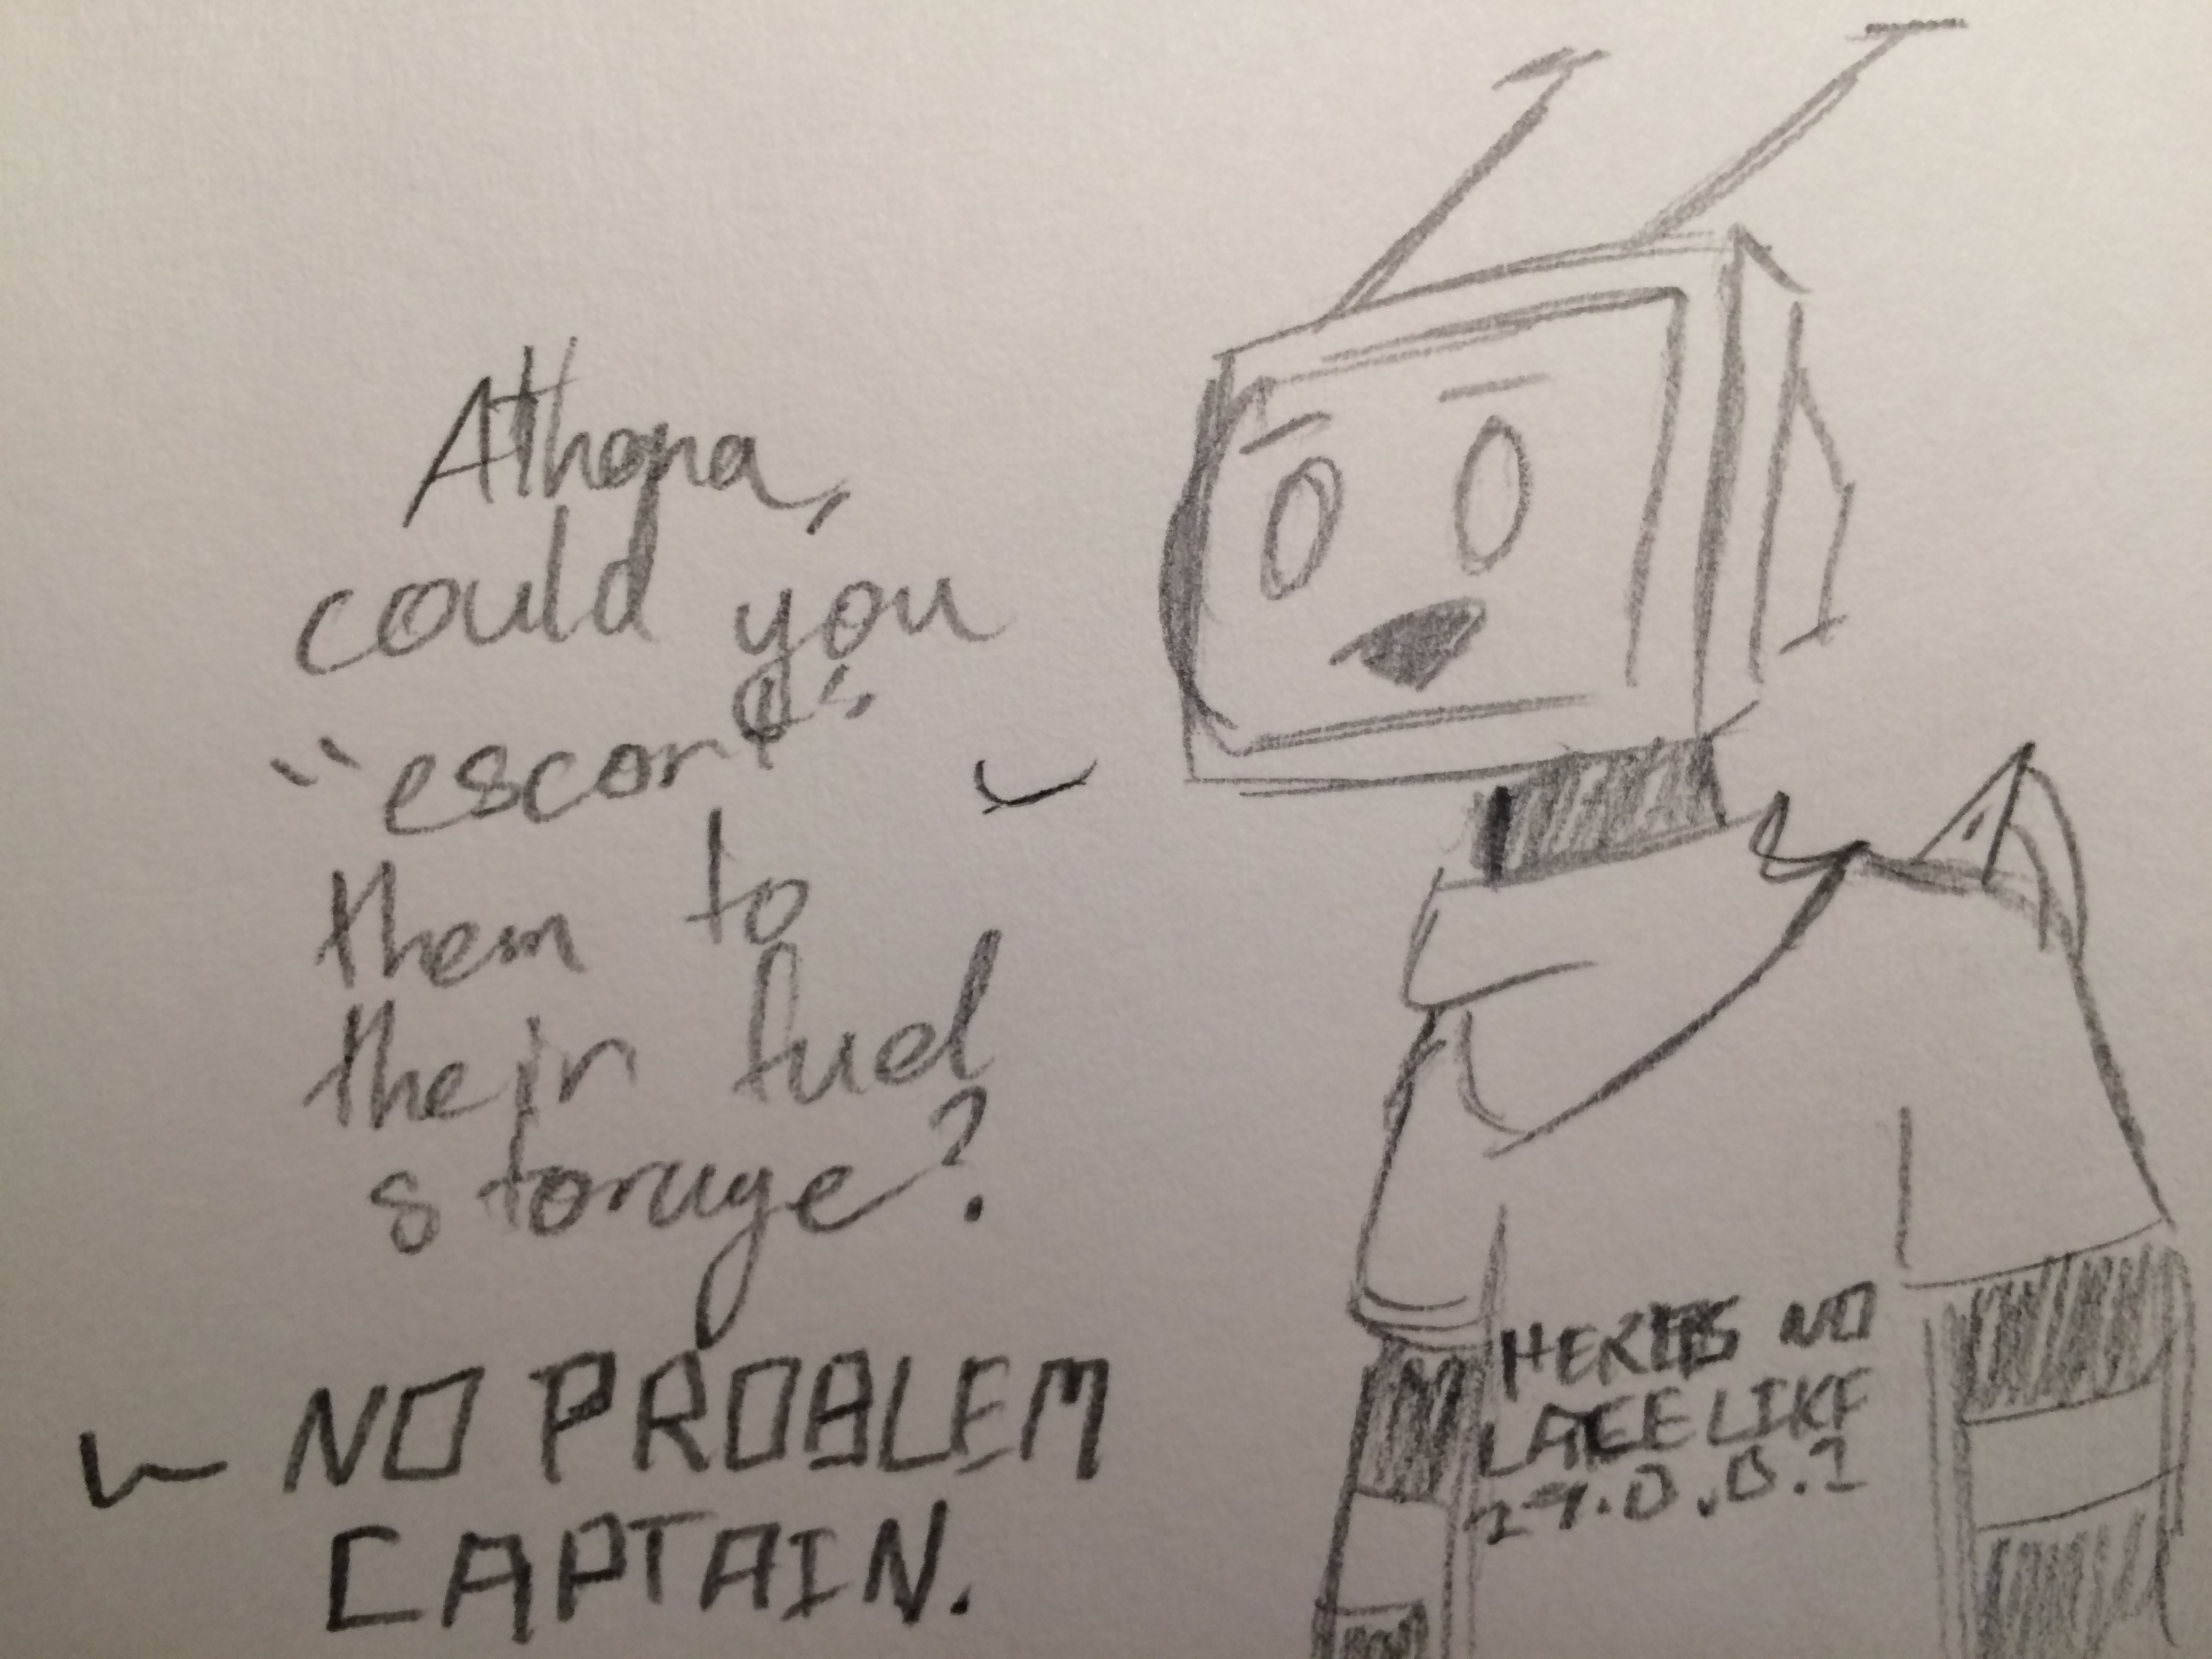 Athena,
could you
"escort"
them to
their fuel
storage?
NO PROBLEM
CAPTAIN.
HERES NO
LACE LIKE
27.0.0.1